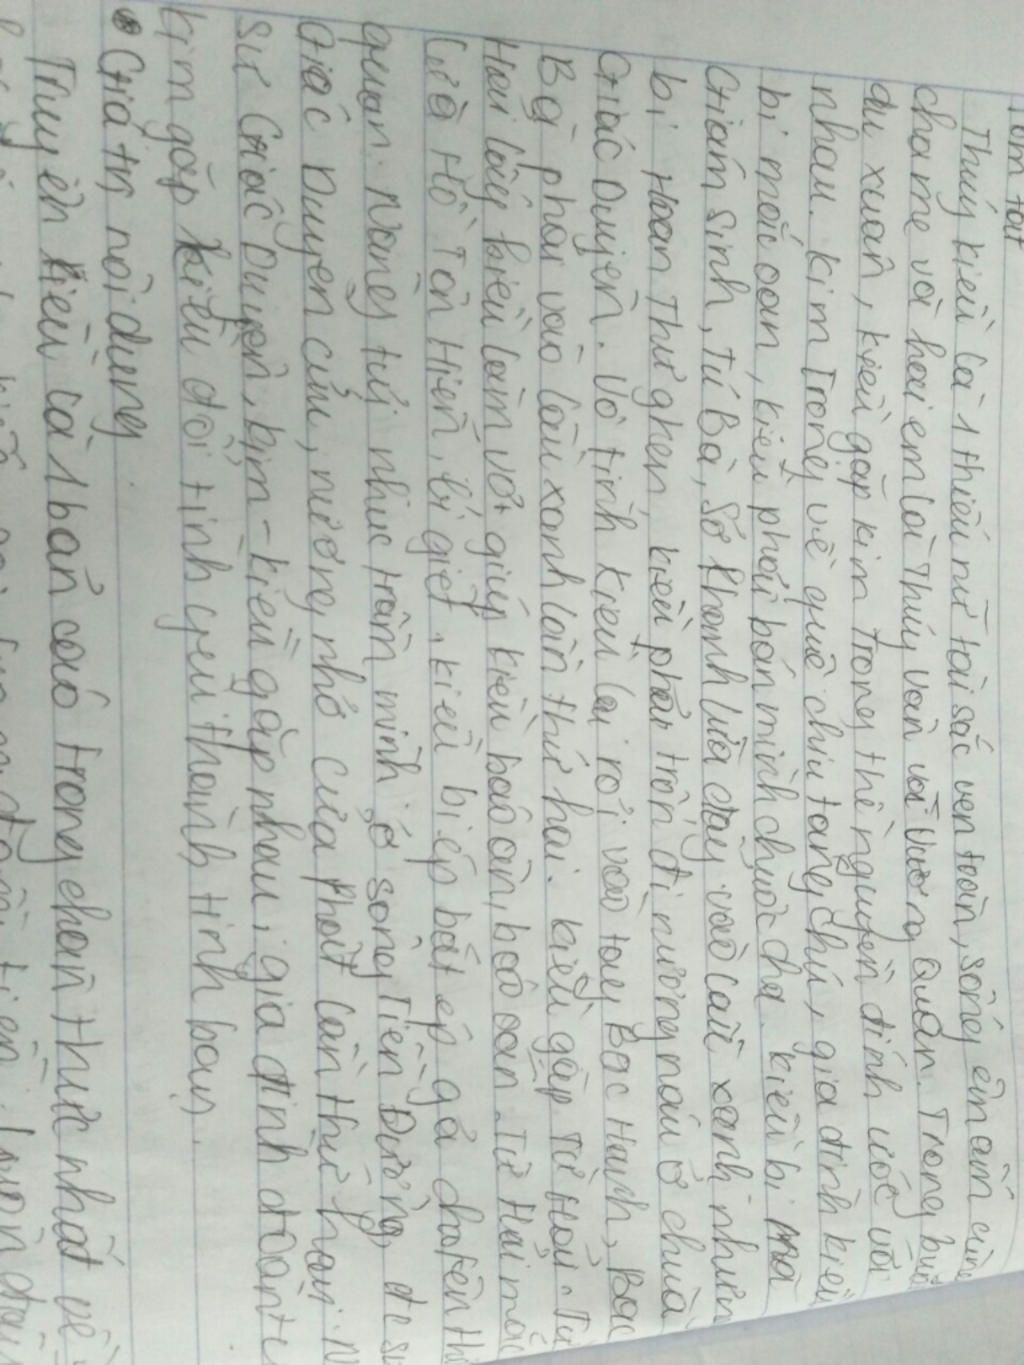 Tóm tắt
Thúy kiều là 1 thiếu nữ tài sắc vẹn toàn, sống êm ấm cùng
cha mẹ và hai em là Thúy Vân và Vương Quan. Trong buổi
du xuân, kiều gặp kim Trọng thề nguyền đính ước với
nhau. kim Trọng về quê chịu tang chú, gia đình kiều
bị mắc oan, kiều phải bán mình chuộc cha. kiều bị mã
Giám Sinh, Tú Bà, Sở Khanh lừa đẩy vào lầu xanh
bị Hoạn Thư ghen, kiều phải trốn đi nương náu ở chùa
Giác Duyên. Vô tình kiều lại rơi vào tay Bạc Hạnh, Bạc
Bà phải vào lầu xanh lần thứ hai. kiều gặp Từ Hải. Từ
Hải lấy kiều làm vợ giúp kiều báo ân, báo oán. Từ Hải mắc
lừa Hồ Tôn Hiến, bị giết, kiều bị ép bắt ép gả cho
quan. Nàng tủi nhục trầm mình ở sông Tiền Đường, đc sư
Giác Duyên cứu, nương nhờ cửa Phật lần thứ hai. N
sư Giác Duyên, kim - kiều gặp nhau, gia đình đoàn tụ
kim gặp kiều đổi tình yêu thành tình bạn.
Giá trị nội dung.
Truyện kiều là 1 bản cáo trạng chân thực nhất về